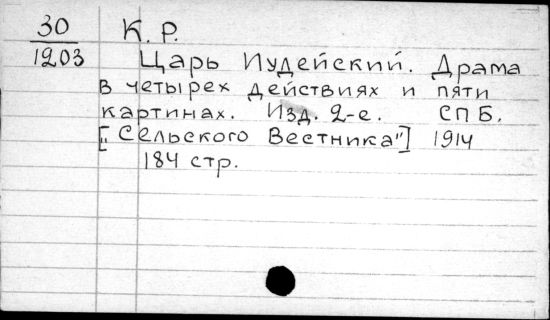 30 К. Р.
1203 Царь Иудейский. Драма
в четырех действиях и пяти
картинах. Изд. 2-е. СПБ.
["Сельского Вестника"] 1914
184 стр.